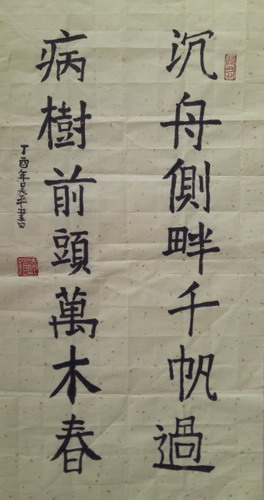 沉舟側畔千帆過
病樹前頭萬木春
丁酉年吴平書